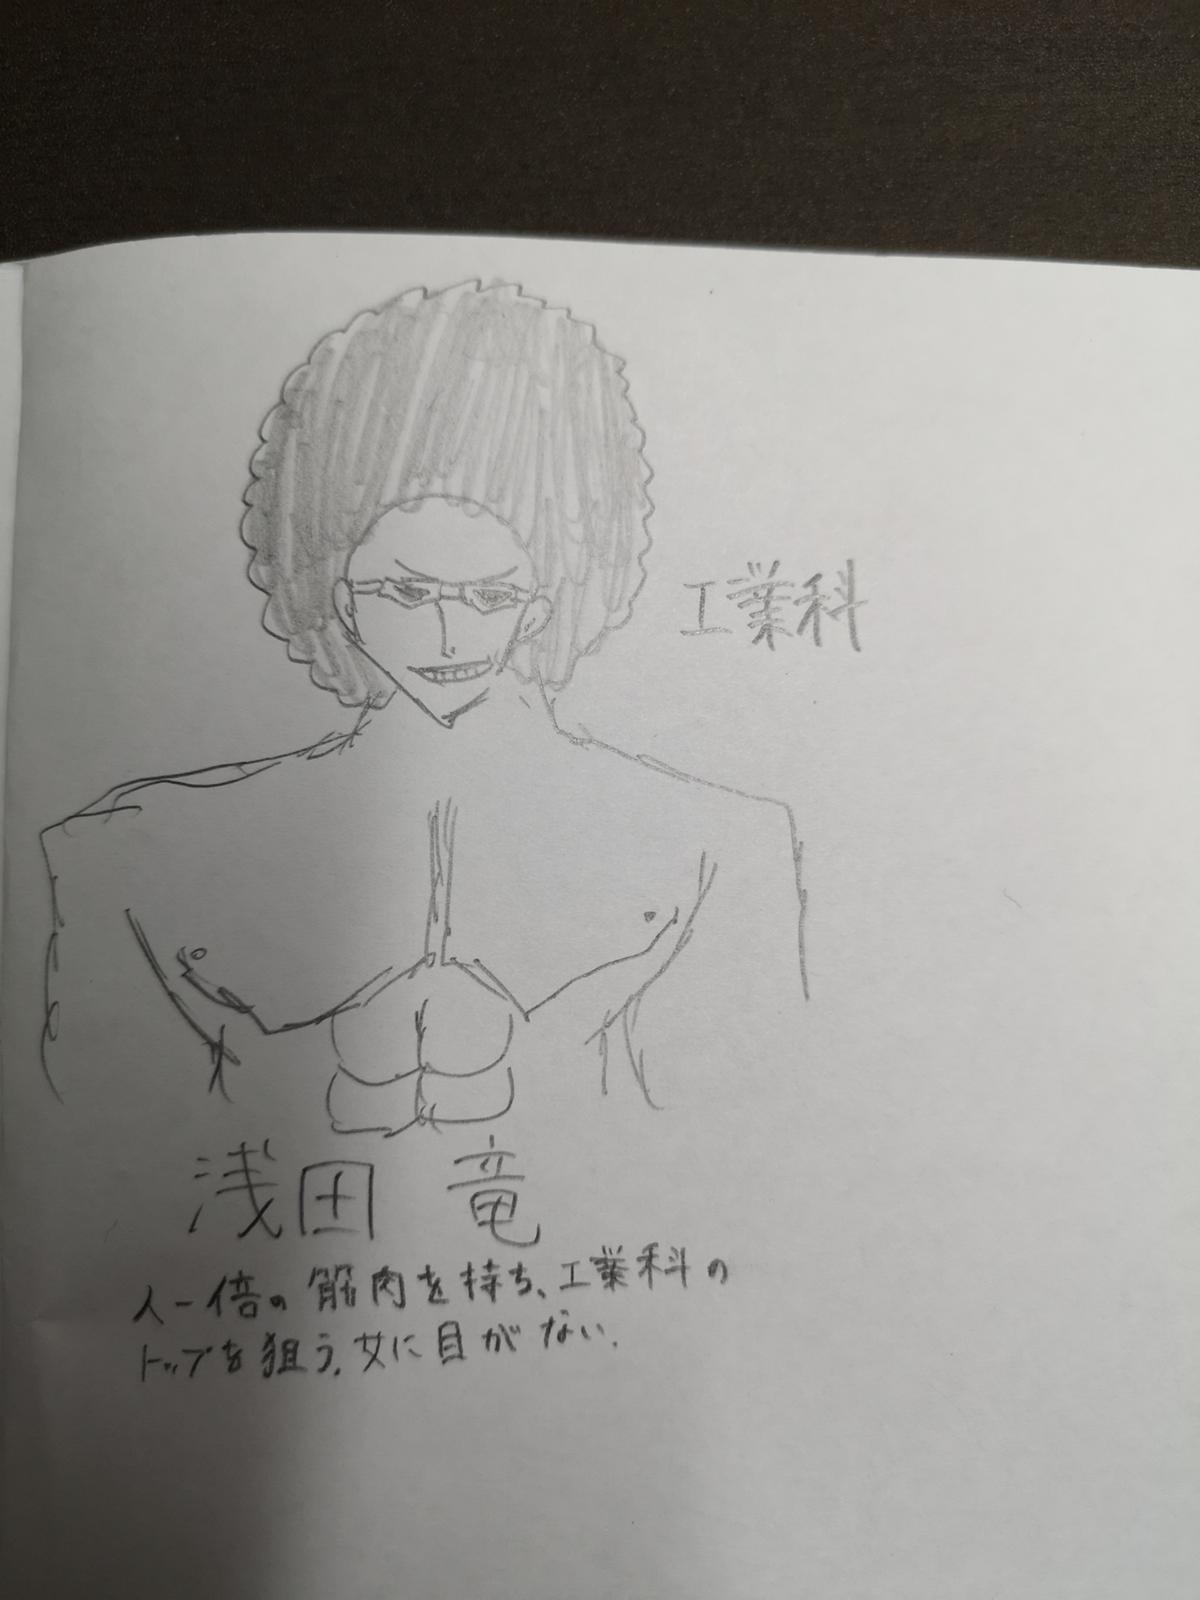 工業科
浅田 竜
人一倍の筋肉を持ち、工業科の
トップを狙う。女に目がない。